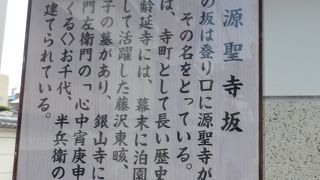 源聖寺坂
の坂は登り口に源聖寺が
その名をとっている。
は、寺町として長い歴史
齢延寺には、幕末に泊園
して活躍した藤沢東畡、
子の墓があり、銀山寺に
門左衛門の「心中宵庚申
くる〈〉お千代、半兵衛の
建てられている。